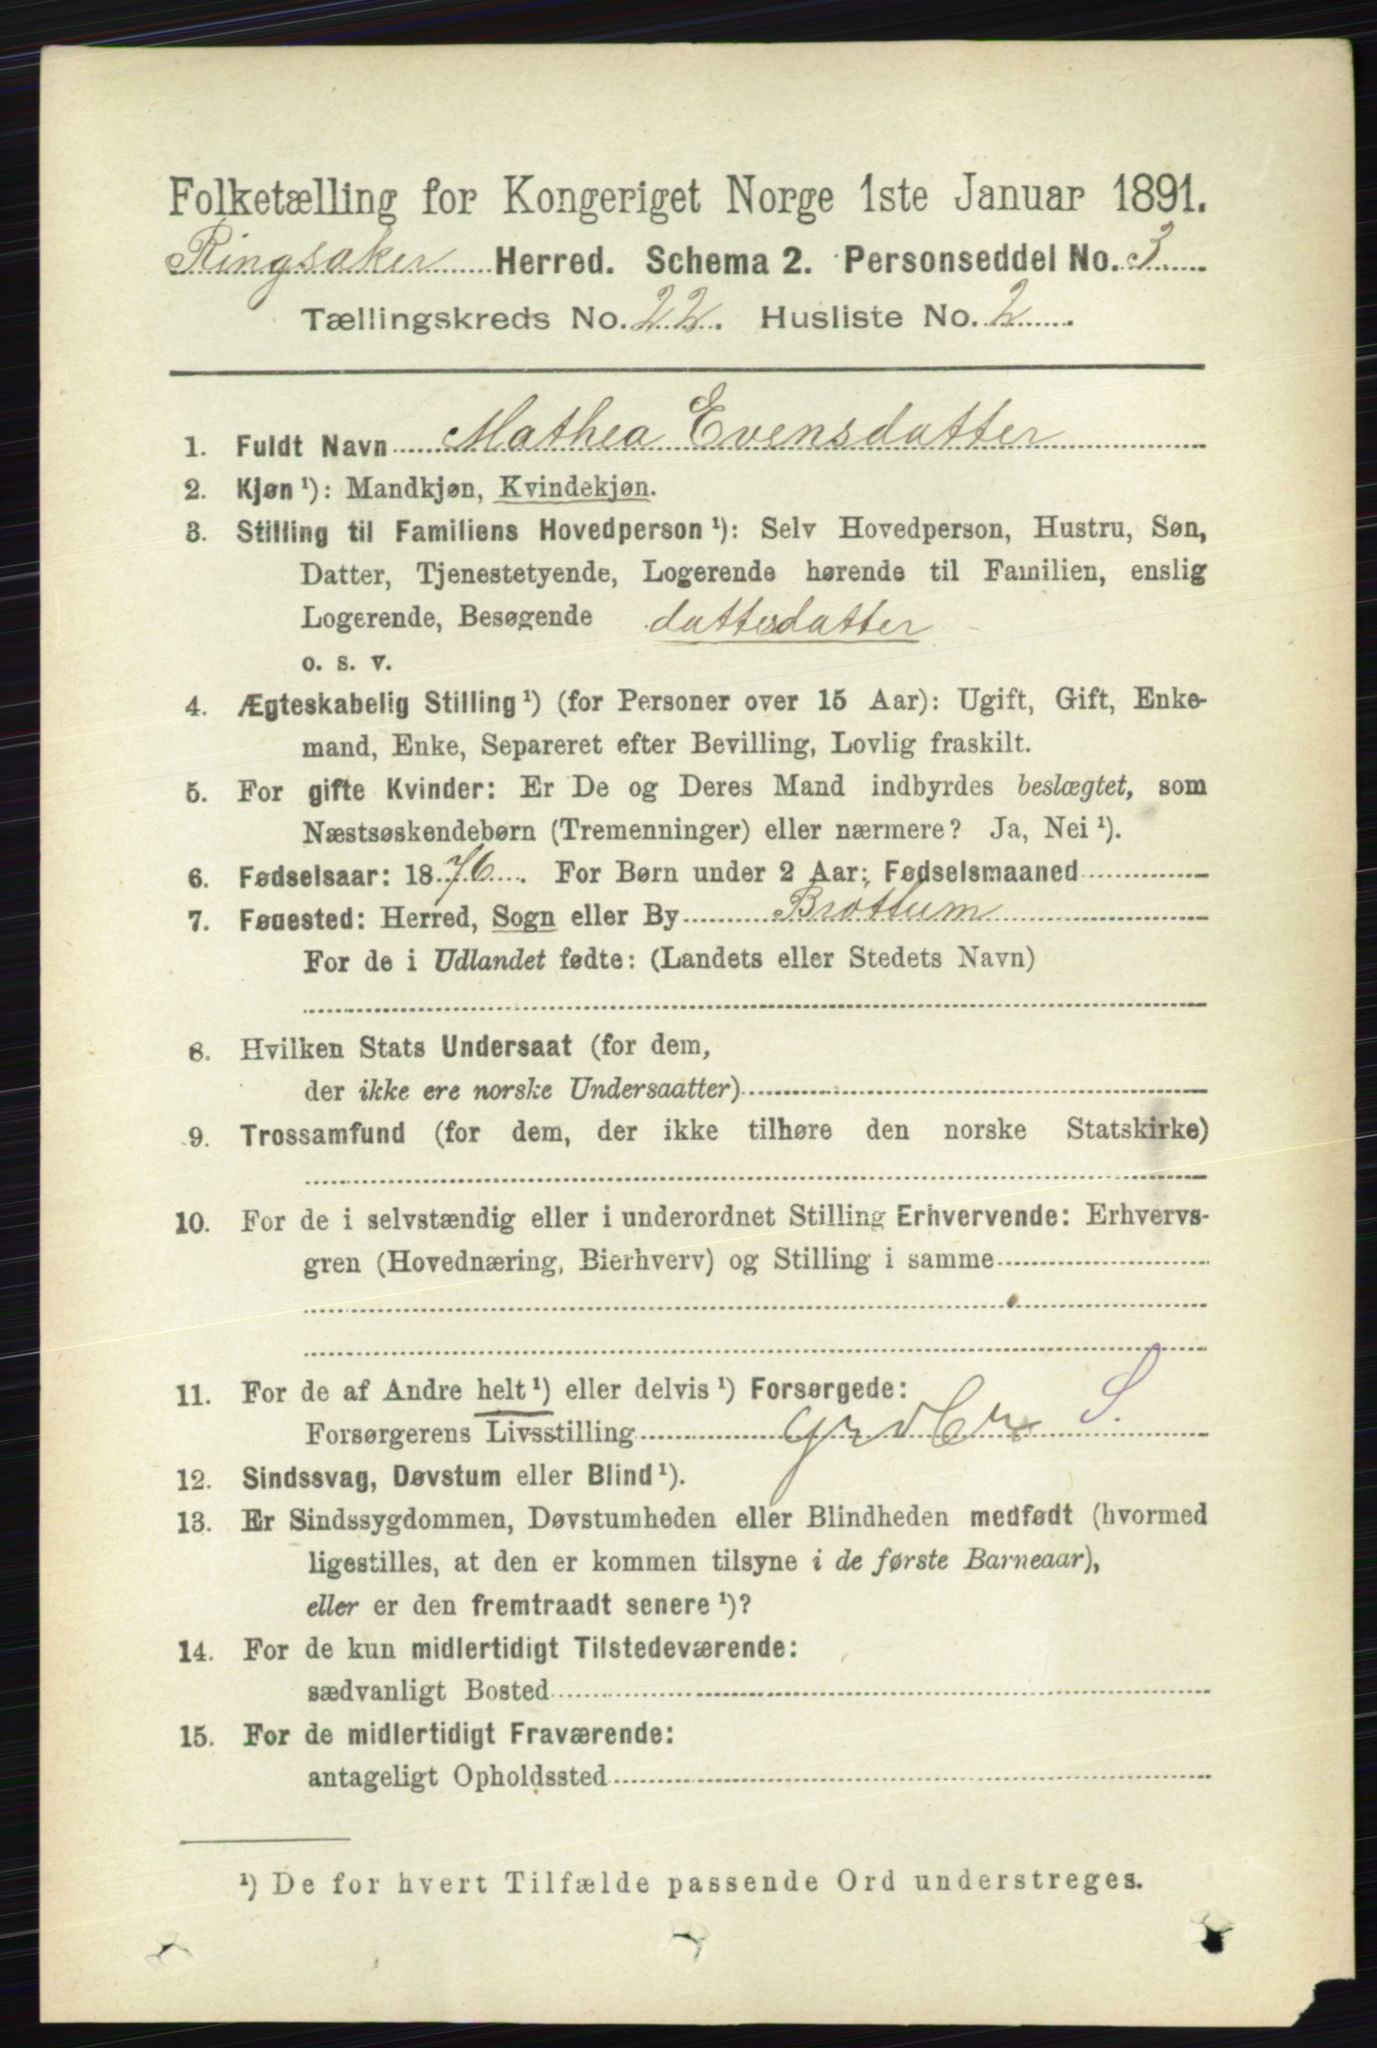 Folketælling for Kongeriget Norge 1ste Januar 1891.
Ringsaker Herred. Schema 2. Personseddel No. 3
Tællingskreds No. 22. Husliste No. 2
1. Fuldt Navn Mathea Evensdatter
2. Kjøn ¹): Mandkjøn, Kvindekjøn.
3. Stilling til Familiens Hovedperson ¹): Selv Hovedperson, Hustru, Søn,
Datter, Tjenestetyende, Logerende hørende til Familien, enslig
Logerende, Besøgende dattesdatter
o. s. v.
4. Ægteskabelig Stilling ¹) (for Personer over 15 Aar): Ugift, Gift, Enke-
mand, Enke, Separeret efter Bevilling, Lovlig fraskilt.
5. For gifte Kvinder: Er De og Deres Mand indbyrdes beslægtet, som
Næstsøskendebørn (Tremenninger) eller nærmere? Ja, Nei ¹).
6. Fødselsaar: 1876. For Børn under 2 Aar: Fødselsmaaned
7. Fødested: Herred, Sogn eller By Brøttum
For de i Udlandet fødte: (Landets eller Stedets Navn)
8. Hvilken Stats Undersaat (for dem,
der ikke ere norske Undersaatter)
9. Trossamfund (for dem, der ikke tilhøre den norske Statskirke)
10. For de i selvstændig eller i underordnet Stilling Erhvervende: Erhvervs-
gren (Hovednæring, Bierhverv) og Stilling i samme
11. For de af Andre helt ¹) eller delvis ¹) Forsørgede:
Forsørgerens Livsstilling S.
12. Sindssvag, Døvstum eller Blind ¹).
13. Er Sindssygdommen, Døvstumheden eller Blindheden medfødt (hvormed
ligestilles, at den er kommen tilsyne i de første Barneaar),
eller er den fremtraadt senere ¹)?
14. For de kun midlertidigt Tilstedeværende:
sædvanligt Bosted
15. For de midlertidigt Fraværende:
antageligt Opholdssted
¹) De for hvert Tilfælde passende Ord understreges.